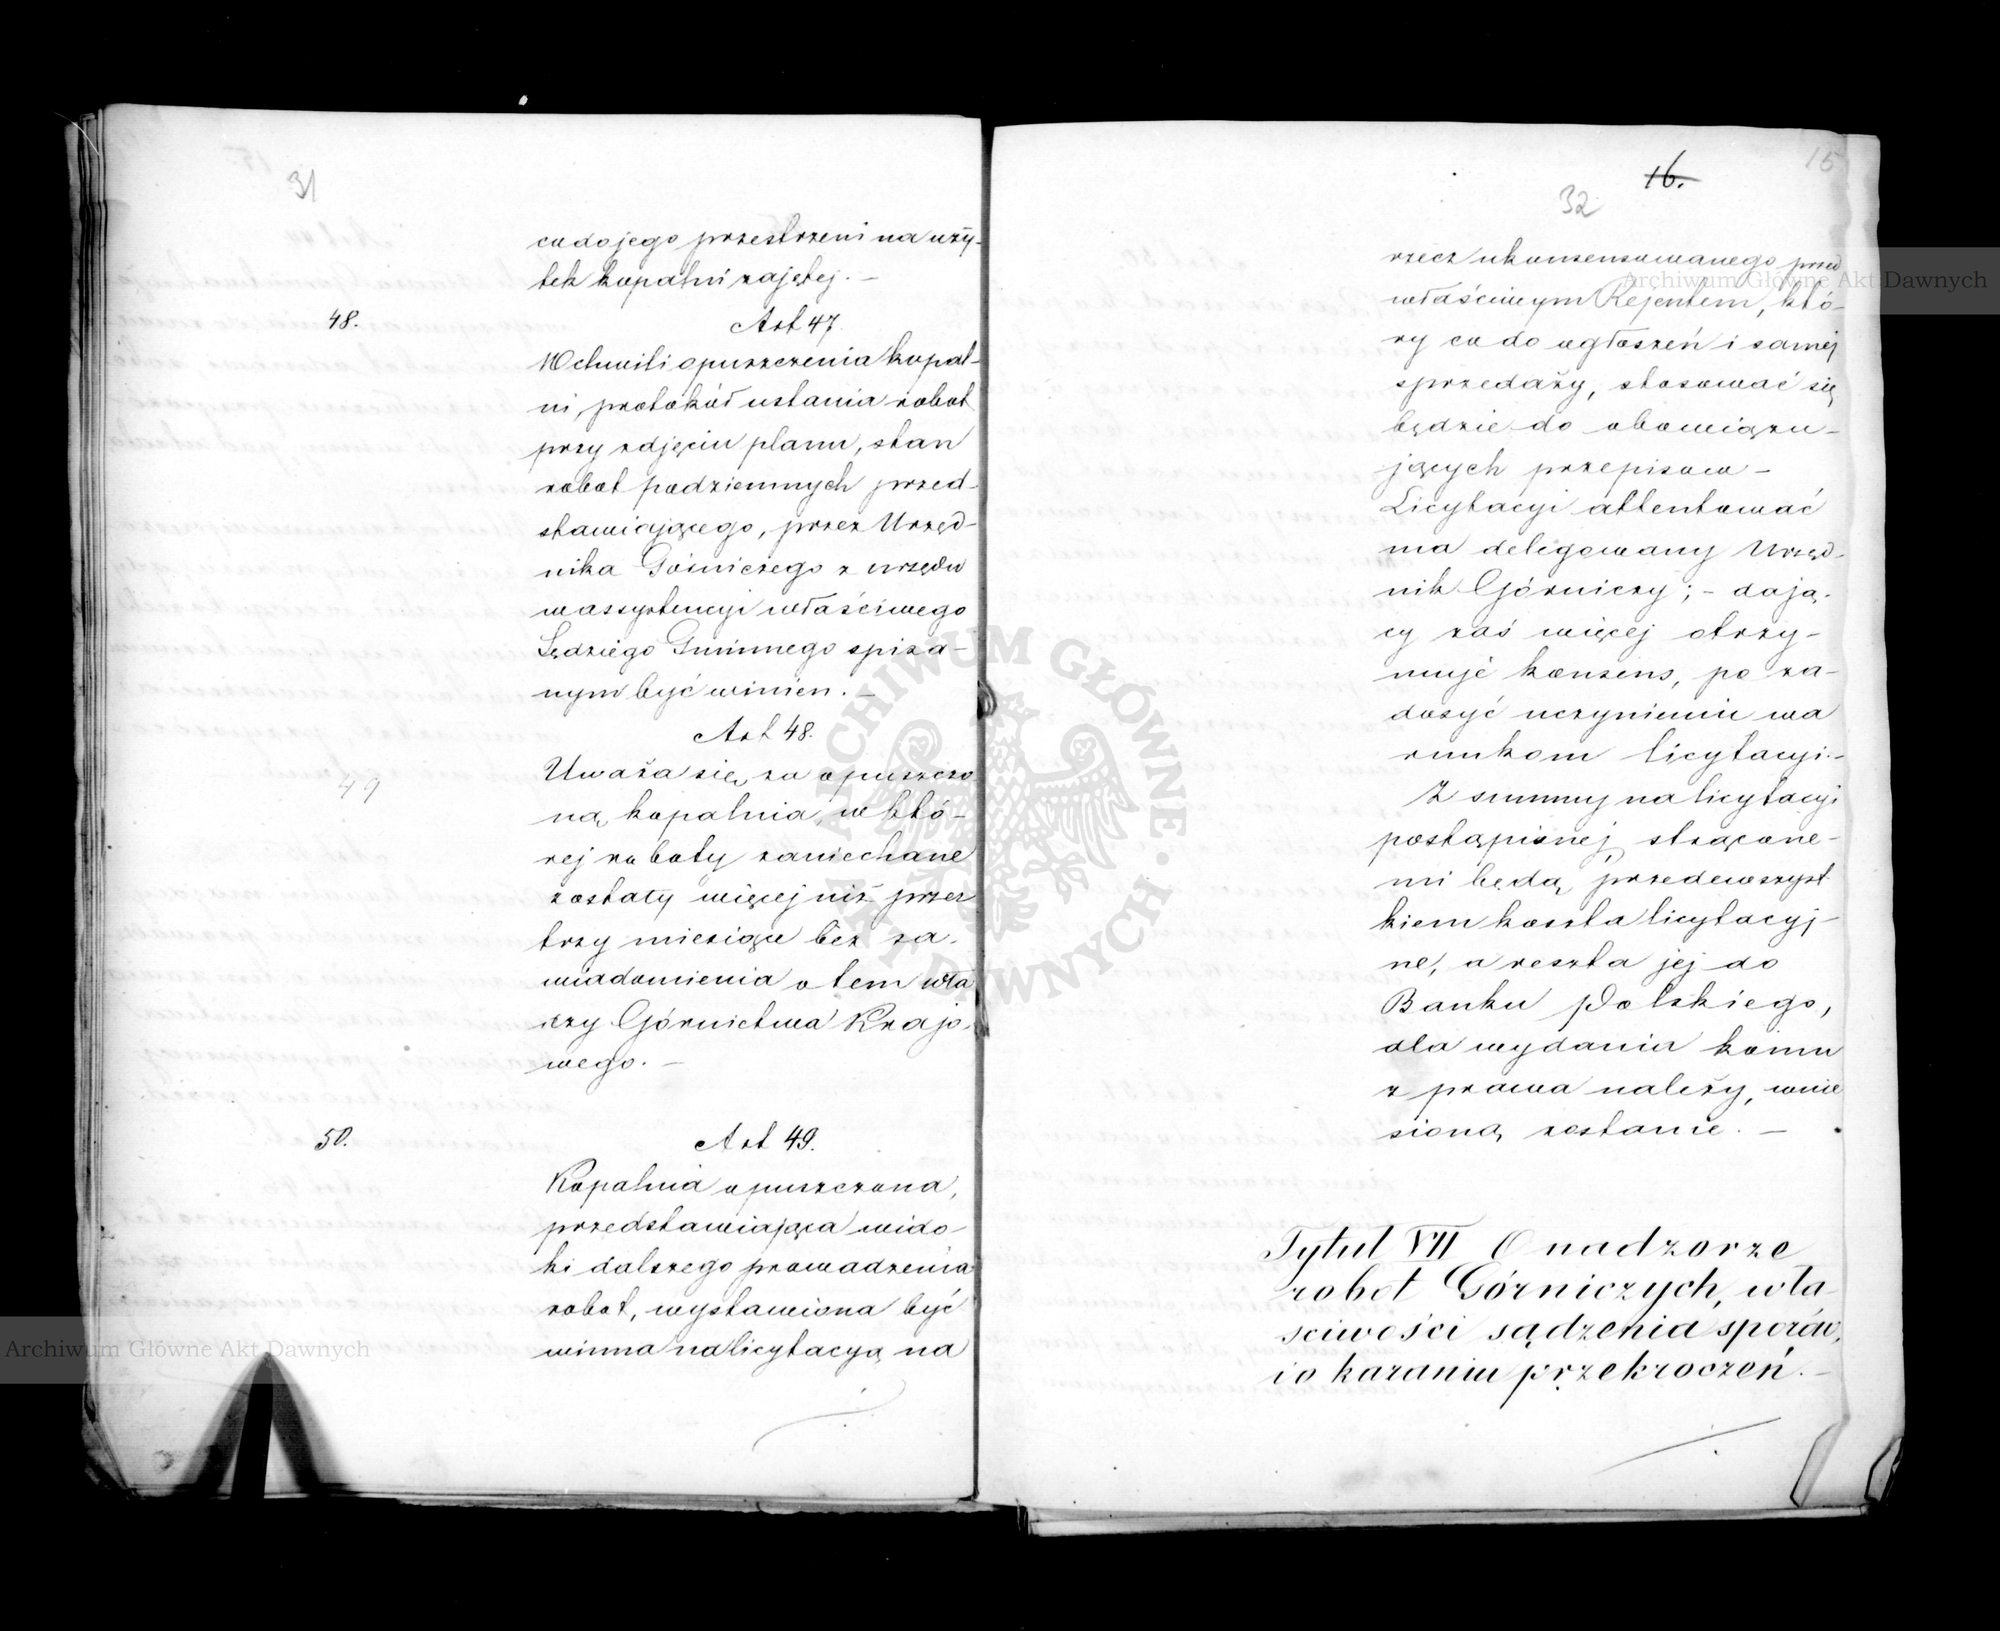 31
co do jego przestrzeni na uży-
tek kopalni zajętej. —
48.
Art 47.
W chwili opuszczenia kopal-
ni, protokół ustania robot
przy zdjęciu planu, stan
robot podziemnych przed-
stawiającego, przez Urzęd-
nika Górniczego z urzędu
w assystencyi właściwego
Sędziego Gminnego spisa-
nym być winien. —
Art 48.
49
Uważa się za opuszczo
ną, kopalnia w któ-
rej roboty zaniechane
zostały więcej niż przez
trzy miesiące bez za-
wiadomienia o tem wła
dzy Górnictwa Krajo-
wego. —
50.
Art 49.
Kopalnia opuszczona,
przedstawiająca wido-
ki dalszego prowadzenia
robot, wystawiona być
winna na licytacyą na
15
16.
32
rzecz ukonsensowanego przed
właściwym Rejentem, któ-
ry co do ogłoszeń i samej
sprzedaży, stosować się
będzie do obowiązu-
jących przepisow —
Licytacyi attentować
ma delegowany Urzęd-
nik Górniczy; — dają-
cy zaś więcej otrzy-
muje konsens, po za-
dosyć uczynieniu wa
runkom licytacyi. —
Z summy na licytacyi
postąpionej, strącone-
mi będą, przedewszyst
kiem koszta licytacyj-
ne, a reszta jej do
Banku Polskiego,
dla wydania komu
z prawa należy, wnie
sioną zostanie. —
Tytuł VII O nadzorze
robot Górniczych, wła-
sciwości sądzenia sporów,
i o karaniu przekroczeń. —
Archiwum Główne Akt Dawnych
Archiwum Główne Akt Dawnych
ARCHIWUM GŁÓWNE • AKT DAWNYCH •